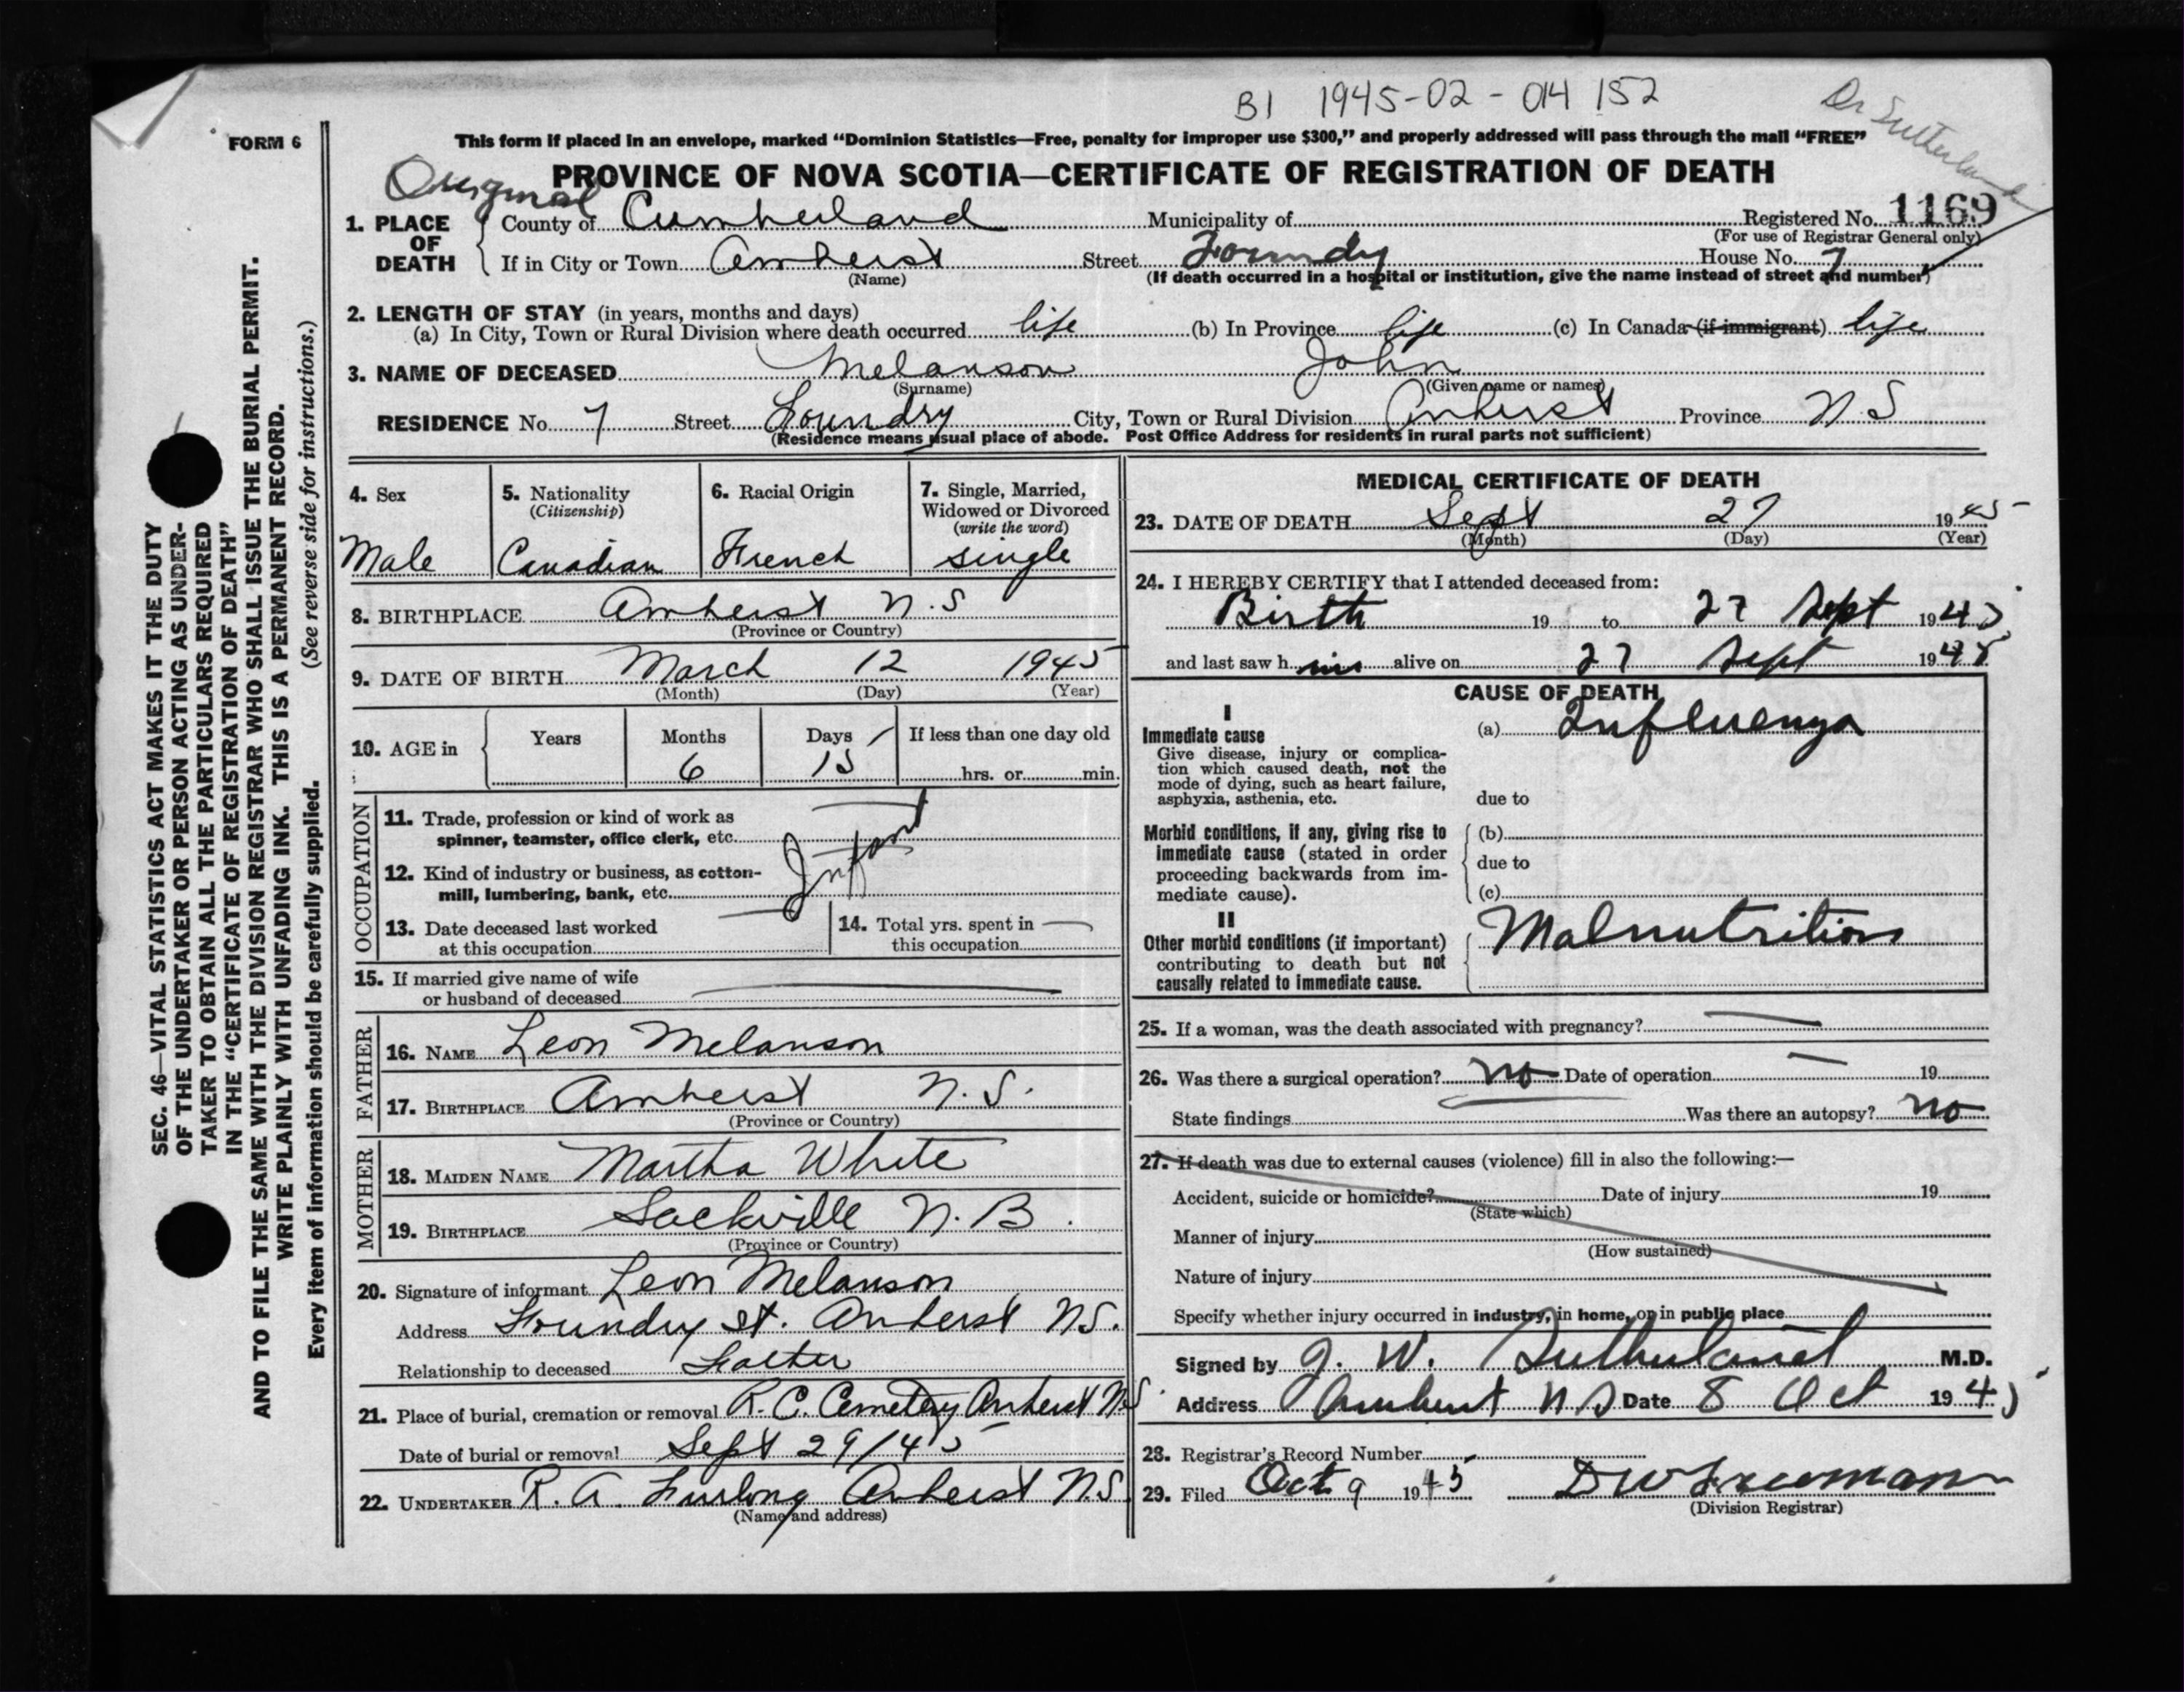 B1 1945-02-014152
Dr Sutherland
FORM 6
This form if placed in an envelope, marked "Dominion Statistics—Free, penalty for improper use $300," and properly addressed will pass through the mail "FREE"
Original
PROVINCE OF NOVA SCOTIA—CERTIFICATE OF REGISTRATION OF DEATH
1. PLACE OF DEATH County of Cumberland Municipality of Registered No. 1169
(For use of Registrar General only)
If in City or Town Amherst Street Foundry House No. 7
(Name) (If death occurred in a hospital or institution, give the name instead of street and number)
2. LENGTH OF STAY (in years, months and days)
(a) In City, Town or Rural Division where death occurred life (b) In Province life (c) In Canada (if immigrant) life
3. NAME OF DECEASED Melanson John
(Surname) (Given name or names)
RESIDENCE No. 7 Street Foundry City, Town or Rural Division Amherst Province N.S
(Residence means usual place of abode. Post Office Address for residents in rural parts not sufficient)
4. Sex
Male
5. Nationality
(Citizenship)
Canadian
6. Racial Origin
French
7. Single, Married,
Widowed or Divorced
(write the word)
single
8. BIRTHPLACE Amherst N.S
(Province or Country)
9. DATE OF BIRTH March 12 1945
(Month) (Day) (Year)
10. AGE in Years Months Days If less than one day old
6 15 hrs. or min.
OCCUPATION
11. Trade, profession or kind of work as
spinner, teamster, office clerk, etc.
Infant
12. Kind of industry or business, as cotton-
mill, lumbering, bank, etc.
13. Date deceased last worked
at this occupation
14. Total yrs. spent in
this occupation
15. If married give name of wife
or husband of deceased
FATHER
16. NAME Leon Melanson
17. BIRTHPLACE Amherst N.S.
(Province or Country)
MOTHER
18. MAIDEN NAME Martha White
19. BIRTHPLACE Sackville N.B.
(Province or Country)
20. Signature of informant Leon Melanson
Address Foundry st. Amherst NS.
Relationship to deceased Father
21. Place of burial, cremation or removal R.C. Cemetery Amherst N.S.
Date of burial or removal Sept 29/45
22. UNDERTAKER R. A. Furlong Amherst N.S.
(Name and address)
MEDICAL CERTIFICATE OF DEATH
23. DATE OF DEATH Sept 27 1945
(Month) (Day) (Year)
24. I HEREBY CERTIFY that I attended deceased from:
Birth 19 to 27 Sept 1945
and last saw him alive on 27 Sept 1945
CAUSE OF DEATH
I
Immediate cause
Give disease, injury or complica-
tion which caused death, not the
mode of dying, such as heart failure,
asphyxia, asthenia, etc.
(a) Influenza
due to
Morbid conditions, if any, giving rise to
immediate cause (stated in order
proceeding backwards from im-
mediate cause).
(b)
due to
(c)
II
Other morbid conditions (if important)
contributing to death but not
causally related to immediate cause.
Malnutrition
25. If a woman, was the death associated with pregnancy?
26. Was there a surgical operation? no Date of operation 19
State findings Was there an autopsy? no
27. If death was due to external causes (violence) fill in also the following:—
Accident, suicide or homicide? Date of injury 19
(State which)
Manner of injury
(How sustained)
Nature of injury
Specify whether injury occurred in industry, in home, or in public place
Signed by J. W. Sutherland M.D.
Address Amherst N S Date 8 Oct 1945
28. Registrar's Record Number
29. Filed Oct 9 1945 D W Freeman
(Division Registrar)
SEC. 46—VITAL STATISTICS ACT MAKES IT THE DUTY
OF THE UNDERTAKER OR PERSON ACTING AS UNDER-
TAKER TO OBTAIN ALL THE PARTICULARS REQUIRED
IN THE "CERTIFICATE OF REGISTRATION OF DEATH"
AND TO FILE THE SAME WITH THE DIVISION REGISTRAR WHO SHALL ISSUE THE BURIAL PERMIT.
WRITE PLAINLY WITH UNFADING INK. THIS IS A PERMANENT RECORD.
Every item of information should be carefully supplied. (See reverse side for instructions.)